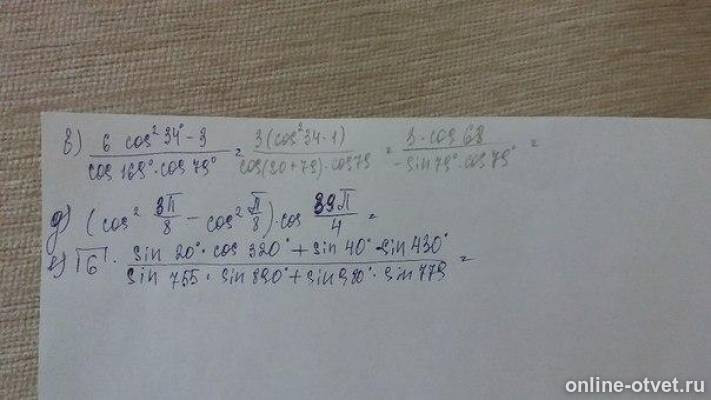 в) (6 cos² 34° - 3)/(cos 169° · cos 79°) = 3(cos² 34 - 1)/(cos(90 + 79) · cos 79) = (3 · cos 68)/(- sin 79° · cos 79°) =
д) (cos² 3π/8 - cos² π/8) · cos 39π/4 =
е) √6 · (sin 20° · cos 320° + sin 40° · sin 430°)/(sin 755 · sin 890° + sin 980° · sin 779) =
online-otvet.ru